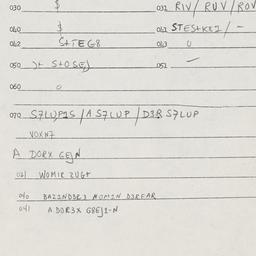 030 $ 031 RIV / RUV / ROV
040 $ 041 STESTKEI / -
042 StTEG8 043 0
050 051 -
060 0
070 S7LUP1S / A S7LUP / D3R S7LUP
VOXN7
A DORX GEJN
021 WOMIR ZUGT
040 BAZ2NDER3 MOM2N D3RFAR
041 A DOR3X GREJ1-N